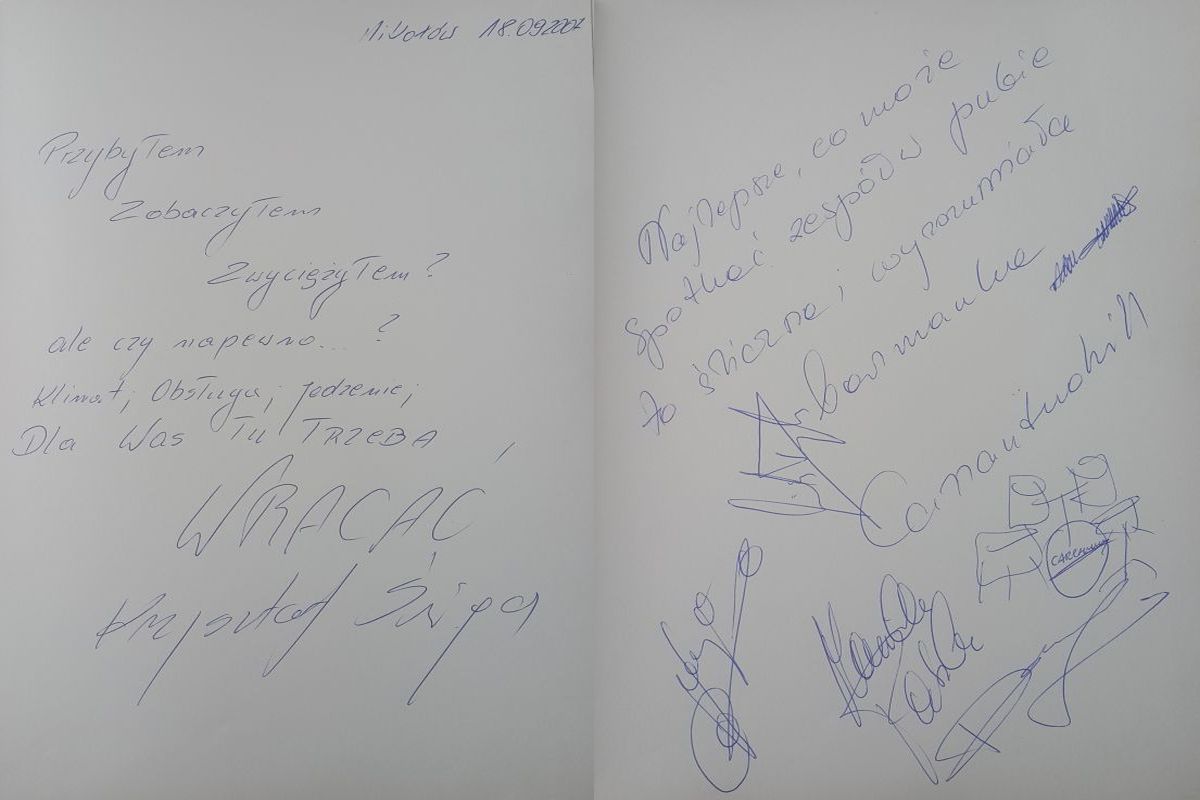 Mikołów 18.09.2007
Przybyłem
Zobaczyłem
Zwyciężyłem?
ale czy napewno...?
Klimat; Obsługa; jedzenie;
Dla Was TU TRZEBA
WRACAĆ
Krzysztof
Najlepsze, co może
spotkać zespół w pubie
to śliczna i wyrozumiała
barmanka
Carrantuohill